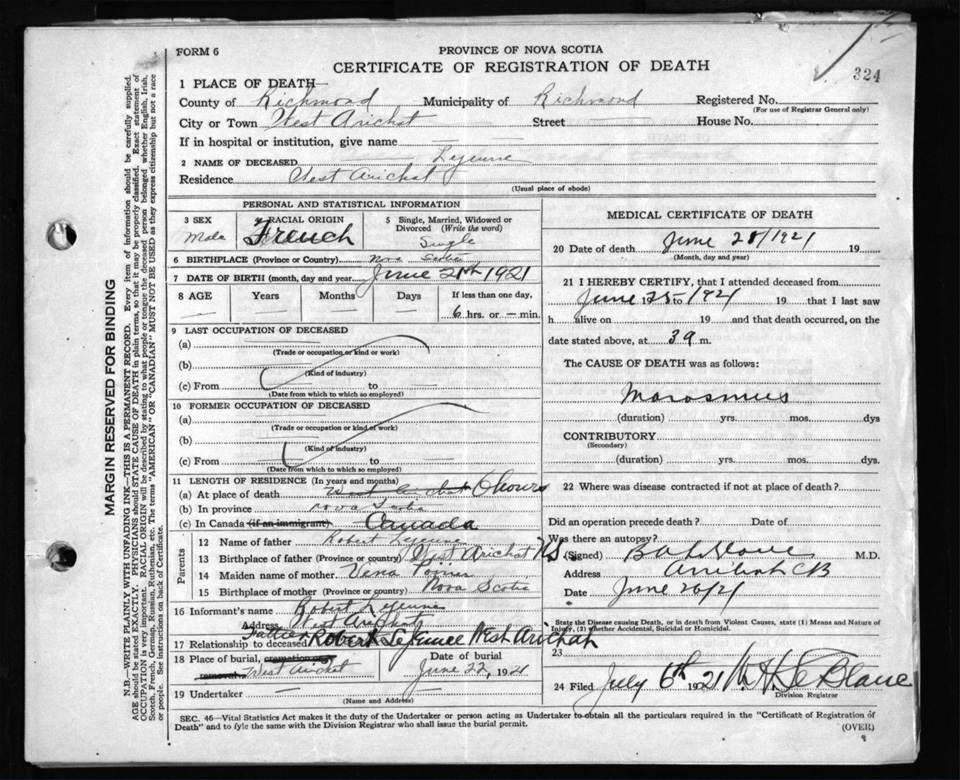 FORM 6
PROVINCE OF NOVA SCOTIA
CERTIFICATE OF REGISTRATION OF DEATH
324
1 PLACE OF DEATH—
County of Richmond Municipality of Richmond Registered No.
(For use of Registrar General only)
City or Town West Arichat Street House No.
If in hospital or institution, give name
2 NAME OF DECEASED Lejeune
Residence West Arichat
(Usual place of abode)
PERSONAL AND STATISTICAL INFORMATION
3 SEX Male
4 RACIAL ORIGIN French
5 Single, Married, Widowed or Divorced (Write the word) Single
6 BIRTHPLACE (Province or Country) Nova Scotia
7 DATE OF BIRTH (month, day and year) June 21th 1921
8 AGE Years Months Days If less than one day. 6 hrs. or — min.
9 LAST OCCUPATION OF DECEASED
(a)
(Trade or occupation or kind or work)
(b)
(Kind of industry)
(c) From to
(Date from which to which so employed)
10 FORMER OCCUPATION OF DECEASED
(a)
(Trade or occupation or kind of work)
(b)
(Kind of industry)
(c) From to
(Date from which to which so employed)
11 LENGTH OF RESIDENCE (In years and months)
(a) At place of death West Arichat 6 hours
(b) In province Nova Scotia
(c) In Canada (if an immigrant) Canada
Parents
12 Name of father Robert Lejeune
13 Birthplace of father (Province or country) West Arichat NS.
14 Maiden name of mother Poirier
15 Birthplace of mother (Province or country) Nova Scotia
16 Informant's name Robert Lejeune
Address West Arichat
Father Robert LeJeunee West Arichat
17 Relationship to deceased
18 Place of burial, cremation or removal West Arichat Date of burial June 22, 1921
19 Undertaker
(Name and Address)
MEDICAL CERTIFICATE OF DEATH
20 Date of death June 21/1921 19
(Month, day and year)
21 I HEREBY CERTIFY, that I attended deceased from
June 19 to 1921 19 that I last saw
h alive on 19 and that death occurred, on
the date stated above, at m.
The CAUSE OF DEATH was as follows:
Marasmus
(duration) yrs. mos. dys
CONTRIBUTORY
(Secondary)
(duration) yrs. mos. dys.
22 Where was disease contracted if not at place of death?
Did an operation precede death? Date of
Was there an autopsy?
(Signed) LeBlanc M.D.
Address Arichat CB
Date June 26/21
State the Disease causing Death, or in death from Violent Causes, state (1) Means and Nature of Injury, (2) whether Accidental, Suicidal or Homicidal.
23
24 Filed July 6th 1921 LeBlanc
Division Registrar
SEC. 46—Vital Statistics Act makes it the duty of the Undertaker or person acting as Undertaker to obtain all the particulars required in the "Certificate of Registration of
Death" and to fyle the same with the Division Registrar who shall issue the burial permit.
(OVER)
MARGIN RESERVED FOR BINDING
N.B.—WRITE PLAINLY WITH UNFADING INK—THIS IS A PERMANENT RECORD. Every item of information should be carefully supplied.
AGE should be stated EXACTLY. PHYSICIANS should STATE CAUSE OF DEATH in plain terms, so that it may be properly classified. Exact statement of
OCCUPATION is very important. RACIAL ORIGIN will be described by stating to what people or tongue the deceased person belonged whether English, Irish,
Scotch, French, German, Russian, Ruthenian, etc. The terms "AMERICAN" OR "CANADIAN" MUST NOT BE USED as they express citizenship but not a race
or people. See instructions on back of Certificate.